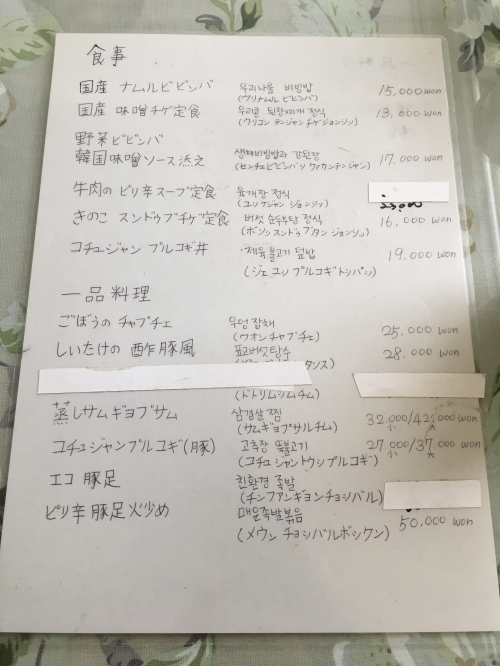 食事
国産 ナムルビビンバ 우리나물 비빔밥 15,000 won
(ウリナムル ビビンバ)
国産 味噌チゲ定食 우리콩 된장찌개 정식 13,000 won
(ウリコン テンジャンチゲジョンシッ)
野菜ビビンバ
韓国味噌ソース添え 생채비빔밥과 강된장 17,000 won
(センチェビビンバッ カンテンジャン)
牛肉の ピリ辛スープ定食 육개장 정식
(ユッケジャン ジョンシッ)
きのこ スンドゥブチゲ定食 버섯 순두부탕 정식 16,000 won
(ボソッ スンドゥブタン ジョンシッ)
コチュジャン プルコギ丼 제육불고기 덮밥 19,000 won
(ジェユッ プルコギトッパッ)
一品料理
ごぼうの チャプチェ 우엉잡채 25,000 won
(ウオンチャプチェ)
しいたけの 酢豚風 표고버섯탕수 28,000 won
タンス)
(ドトリムシムチム)
蒸しサムギョプサム 삼겹살찜 32,000/42,000 won
ム (サムギョプサルチム) 小 大
コチュジャンプルコギ(豚) 고추장 불고기 27,000/37,000 won
(コチュジャントウップルコギ) 小 大
エコ 豚足 친환경 족발
(チンファンギョンチョッバル)
ピリ辛 豚足火少め 매운족발볶음 50,000 won
(メウン チョッバルボックン)